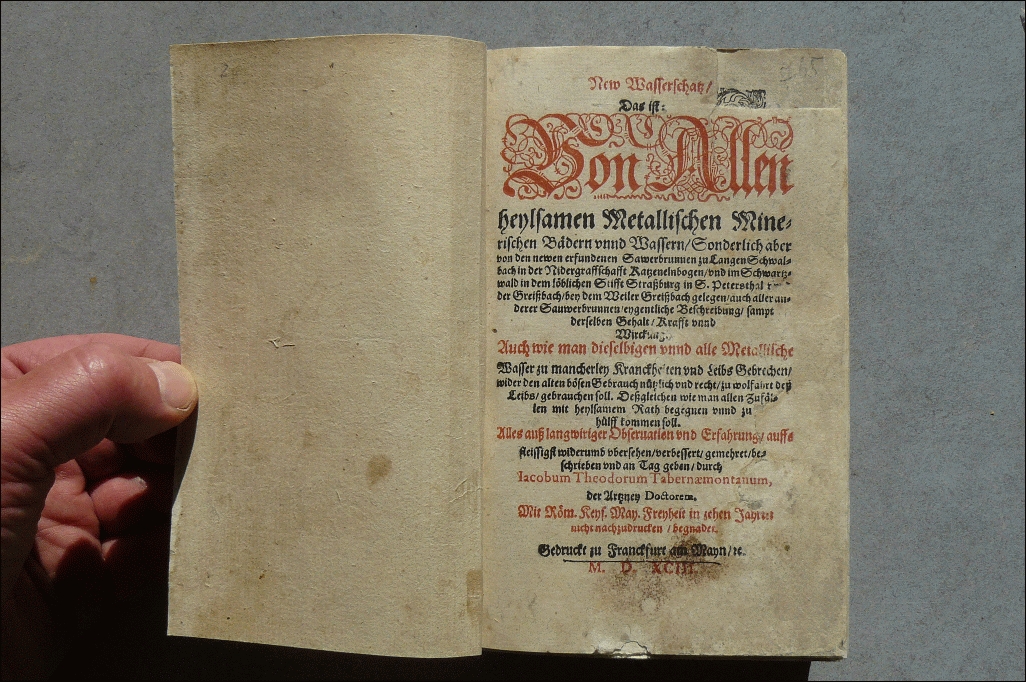 2
New Wasserschatz/
Das ist:
Von Allen
heylsamen Metallischen Mine-
rischen Bädern vnnd Wassern/Sonderlich aber
von den newen erfundenen Sawerbrunnen zu Langen Schwal-
bach in der Nidergraffschafft Katzenelnbogen/vnd im Schwartz-
wald in dem löblichen Stifft Straßburg in S. Petersthal
der Greißbach/bey dem Weiler Greißbach gelegen/auch aller an-
derer Sauwerbrunnen/eygentliche Beschreibung/sampt
derselben Gehalt/Krafft vnnd
Wirckung.
Auch wie man dieselbigen vnnd alle Metallische
Wasser zu mancherley Kranckheiten vnd Leibs Gebrechen/
wider den alten bösen Gebrauch nützlich vnd recht/zu wolfahrt deß
Leibs/gebrauchen soll. Deßgleichen wie man allen Zufäl-
len mit heylsamem Rath begegnen vnnd zu
hülff kommen soll.
Alles auß langwiriger Obseruation vnd Erfahrung/auffs
fleissigst widerumb vbersehen/verbessert/gemehret/be-
schrieben vnd an Tag geben/durch
Iacobum Theodorum Tabernæmontanum,
der Artzney Doctorem.
Mit Röm. Keys. May. Freyheit in zehen Jahren
nicht nachzudrucken/begnadet.
Gedruckt zu Franckfurt am Mayn/ꝛc.
M. D. XCIII.